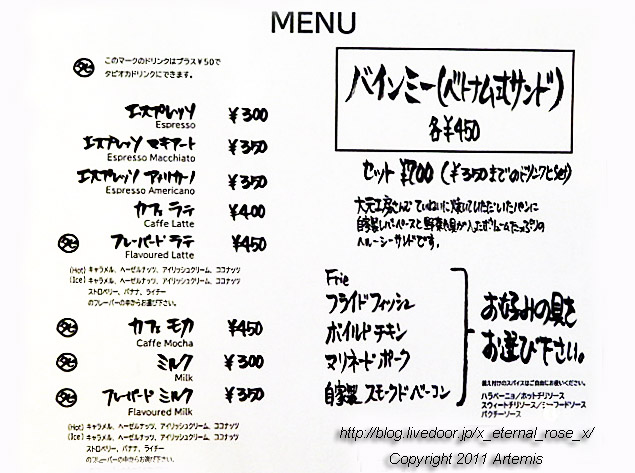 MENU
タピ このマークのドリンクはプラス¥50で
タピオカドリンクにできます。
エスプレッソ ¥300
Espresso
エスプレッソ マキアート ¥350
Espresso Macchiato
エスプレッソ アメリカーノ ¥350
Espresso Americano
カフェ ラテ ¥400
Caffe Latte
タピ フレーバード ラテ ¥450
Flavoured Latte
(Hot) キャラメル、ヘーゼルナッツ、アイリッシュクリーム、ココナッツ
(Ice) キャラメル、ヘーゼルナッツ、アイリッシュクリーム、ココナッツ
ストロベリー、バナナ、ライチー
のフレーバーの中からお選び下さい。
タピ カフェ モカ ¥450
Caffe Mocha
タピ ミルク ¥300
Milk
タピ フレーバード ミルク ¥350
Flavoured Milk
(Hot) キャラメル、ヘーゼルナッツ、アイリッシュクリーム、ココナッツ
(Ice) キャラメル、ヘーゼルナッツ、アイリッシュクリーム、ココナッツ
ストロベリー、バナナ、ライチー
のフレーバーの中からお選び下さい。
バインミー(ベトナム式サンド)
各¥450
セット ¥700 (¥350までのドリンクとSet)
大元工房さんで ていねいに焼いていただいたパンに
自家製レバーペーストと野菜や具が入ったボリュームたっぷりの
ヘルシーサンドです。
Frie
フライドフィッシュ
ボイルドチキン
マリネードポーク
自家製 スモークドベーコン
お好みの具を
お選び下さい。
備え付けのスパイスはご自由にお使いください。
ハラペーニョ/ホットチリソース
スウィートチリソース/シーフードソース
パクチーソース
http://blog.livedoor.jp/x_eternal_rose_x/
Copyright 2011 Artemis